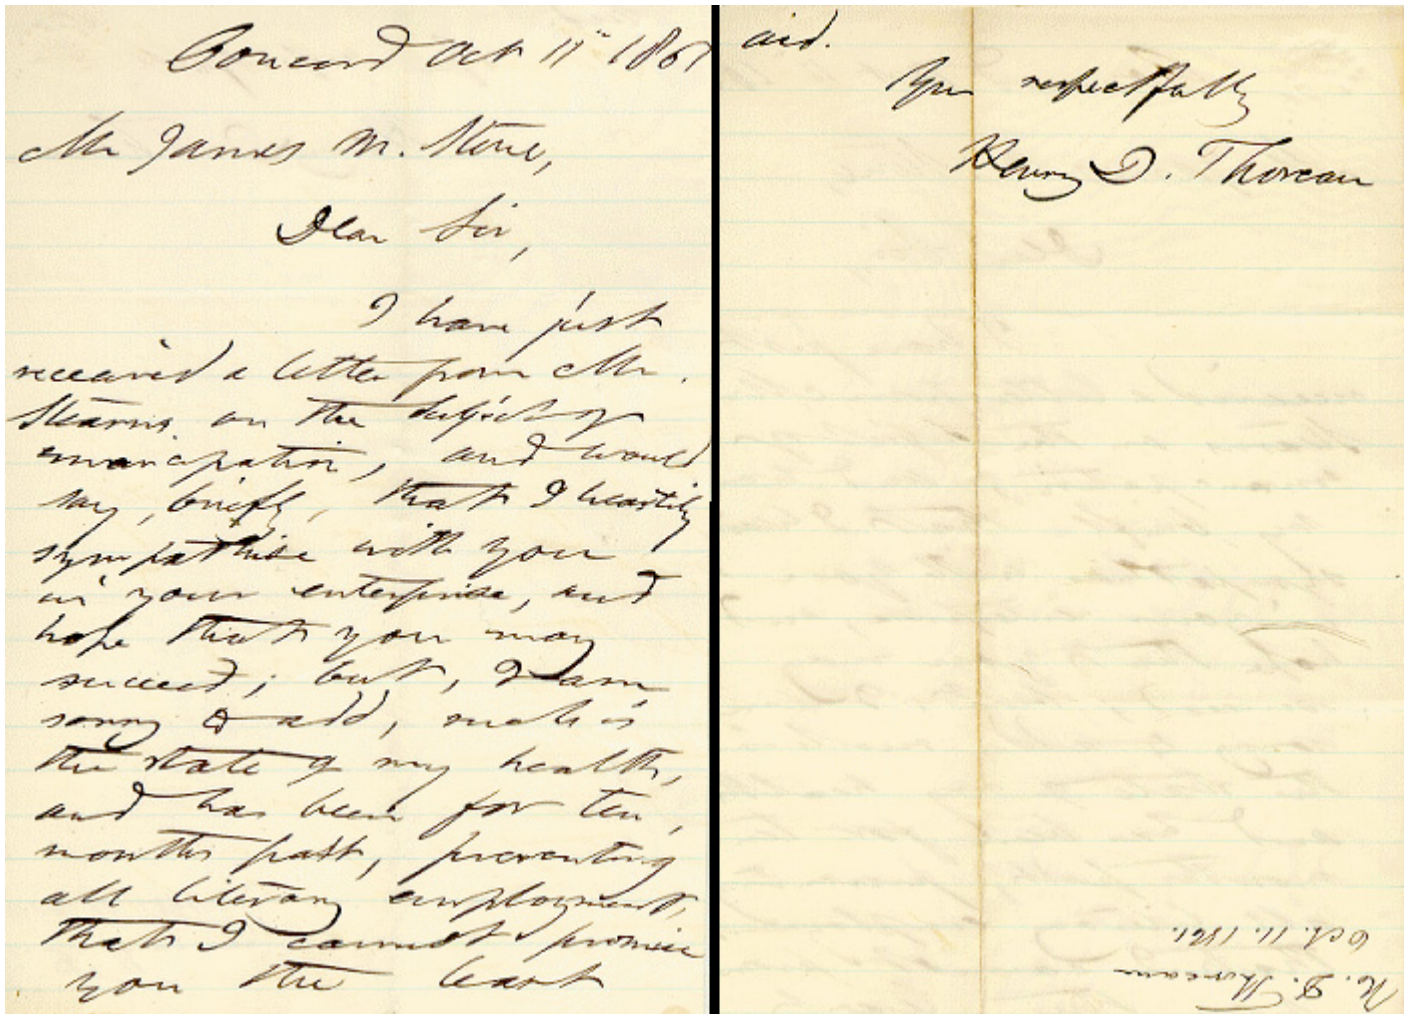 Concord Oct 11th 1861
Mr James M. Stone,
Dear Sir,
I have just
received a letter from Mr.
Stearns on the subject of
emancipation, and would
say, briefly, that I heartily
sympathise with you
in your enterprise, and
hope that you may
succeed; but, I am
sorry to add, such is
the state of my health,
and has been for ten
months past, preventing
all literary employment,
that I cannot promise
you the least
aid.
Yrs respectfully
Henry D. Thoreau
H. D. Thoreau
Oct. 11. 1861.